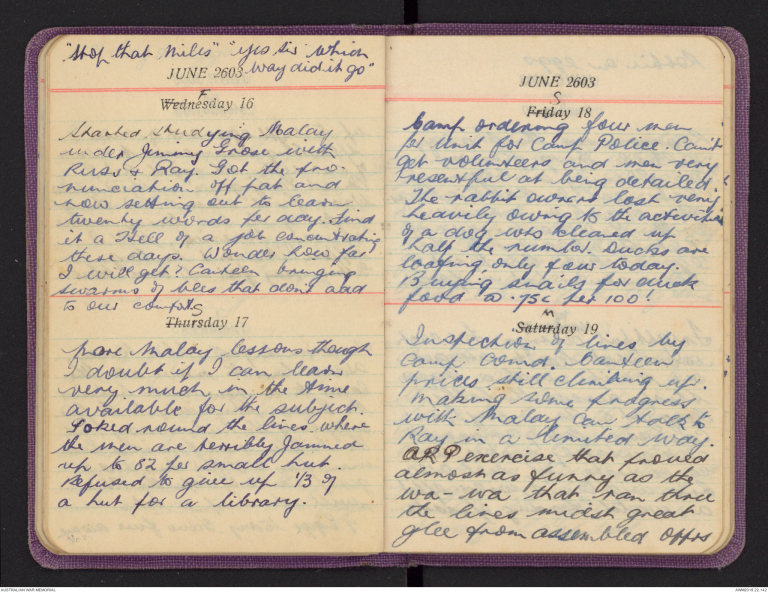 "Stop that Mills" "yes sir which
way did it go"
JUNE 2603
F
Wednesday 16
Started studying Malay
under Jimmy Grose with
Russ & Ray. Got the pro-
nunciation off pat and
now setting out to learn
twenty words per day. Find
it a Hell of a job concentrating
these days. Wonder how far
I will get? Canteen bringing
swarms of bles that dont add
to our comfort
S
Thursday 17
More Malay lessons though
I doubt if I can learn
very much in the time
available for the subject.
Looked round the lines where
the men are terribly jammed
up to 82 per small hut.
Refused to give up 1/3 of
a hut for a library.
JUNE 2603
S
Friday 18
Camp ordering four men
per Unit for Camp Police. Can't
get volunteers and men very
resentful at being detailed.
The rabbit owners lost very
heavily owing to the activities
of a dog who cleaned up
half the number. Ducks are
loafing only four today.
Buying snails for duck
food @ .75c per 100!
M
Saturday 19
Inspection of lines by
Camp Comd. Canteen
prices still climbing up.
Making some progress
with Malay can talk to
Ray in a limited way.
ARP exercise that proved
almost as funny as the
wa-wa that ran thru
the lines midst great
glee from assembled offrs
AUSTRALIAN WAR MEMORIAL